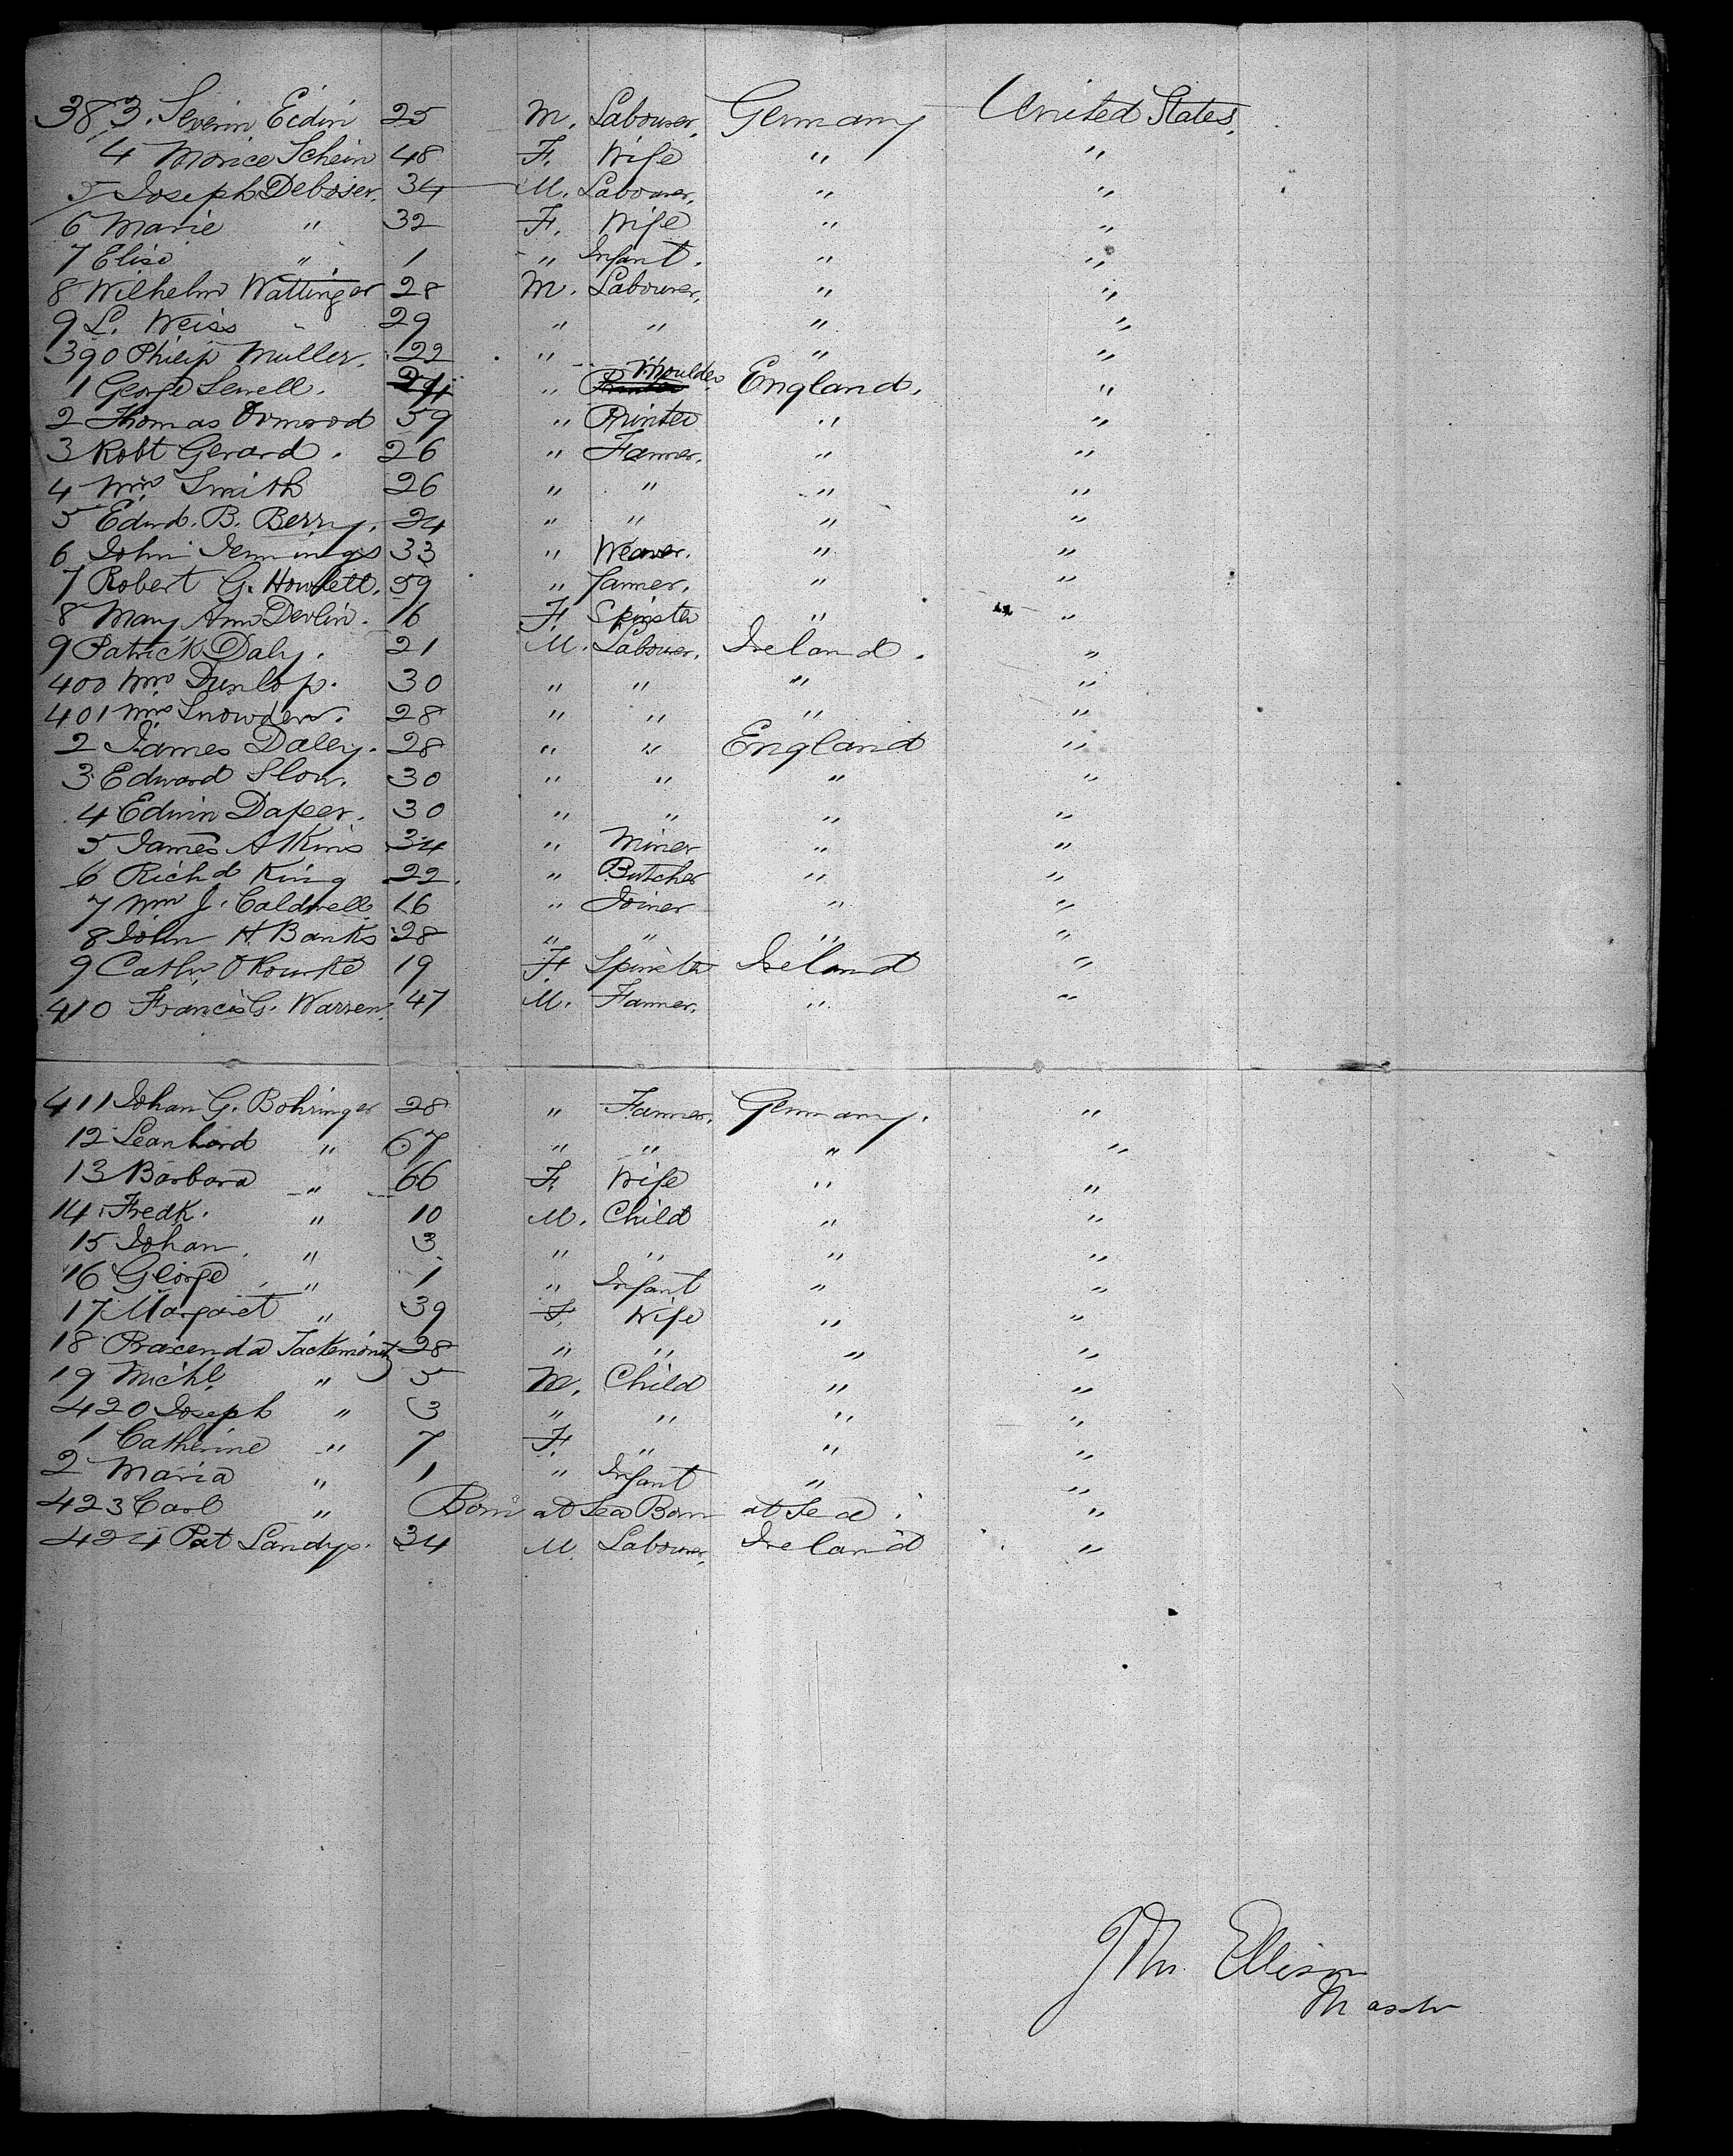 383. Severin Eidin 25 M. Labourer, Germany United States,
4 Morice Schein 48 F. Wife " "
5 Joseph Deboser. 34 M. Labourer, " "
6 Marie " 32 F. Wife " "
7 Elise " 1 " Infant. " "
8 Wilhelm Wattinger 28 M. Labourer, " "
9 L. Weiss 29 " " " "
390 Philip Muller. 22 " " " "
1 George Sewell. 24 " Moulder England. "
2 Thomas Ormrod 59 " Printer " "
3 Robt Gerard. 26 " Farmer, " "
4 Wm Smith 26 " " " "
5 Edwd. B. Berry. 24 " " " "
6 John Jennings 33 " Weaver. " "
7 Robert G. Howlett. 59 " Farmer, " "
8 Mary Ann Devlin. 16 F. Spinster " "
9 Patrick Daly. 21 M. Labourer, Ireland. "
400 Wm Dunlop. 30 " " " "
401 Wm Snowden. 28 " " " "
2 James Daley. 28 " " England "
3 Edward Slow. 30 " " " "
4 Edwin Daper. 30 " " " "
5 James Atkins 34 " Miner " "
6 Richd King 22. " Butcher " "
7 Wm J. Caldwell 16 " Joiner " "
8 John H. Banks 28 " " " "
9 Cathe. O Rourke 19 F. Spinster Ireland "
410 Francis G. Warren. 47 M. Farmer, " "
411 Johan G. Bohringer 28 " Farmer, Germany. "
12 Leanhard " 67 " " " "
13 Barbara " 66 F. Wife " "
14. Fredk. " 10 M. Child " "
15 Johan. " 3 " " " "
16 George " 1 " Infant " "
17 Margaret " 39 F. Wife " "
18 28 " " " "
19 Michl. " 5 M. Child " "
420 Joseph " 3 " " " "
1 Catherine " 7 F. " " "
2 Maria " 1 " Infant " "
423 Carl " Born at Sea Born at Sea. "
424 Pat Sandys. 34 M. Labourer, Ireland "
Ellison
Master